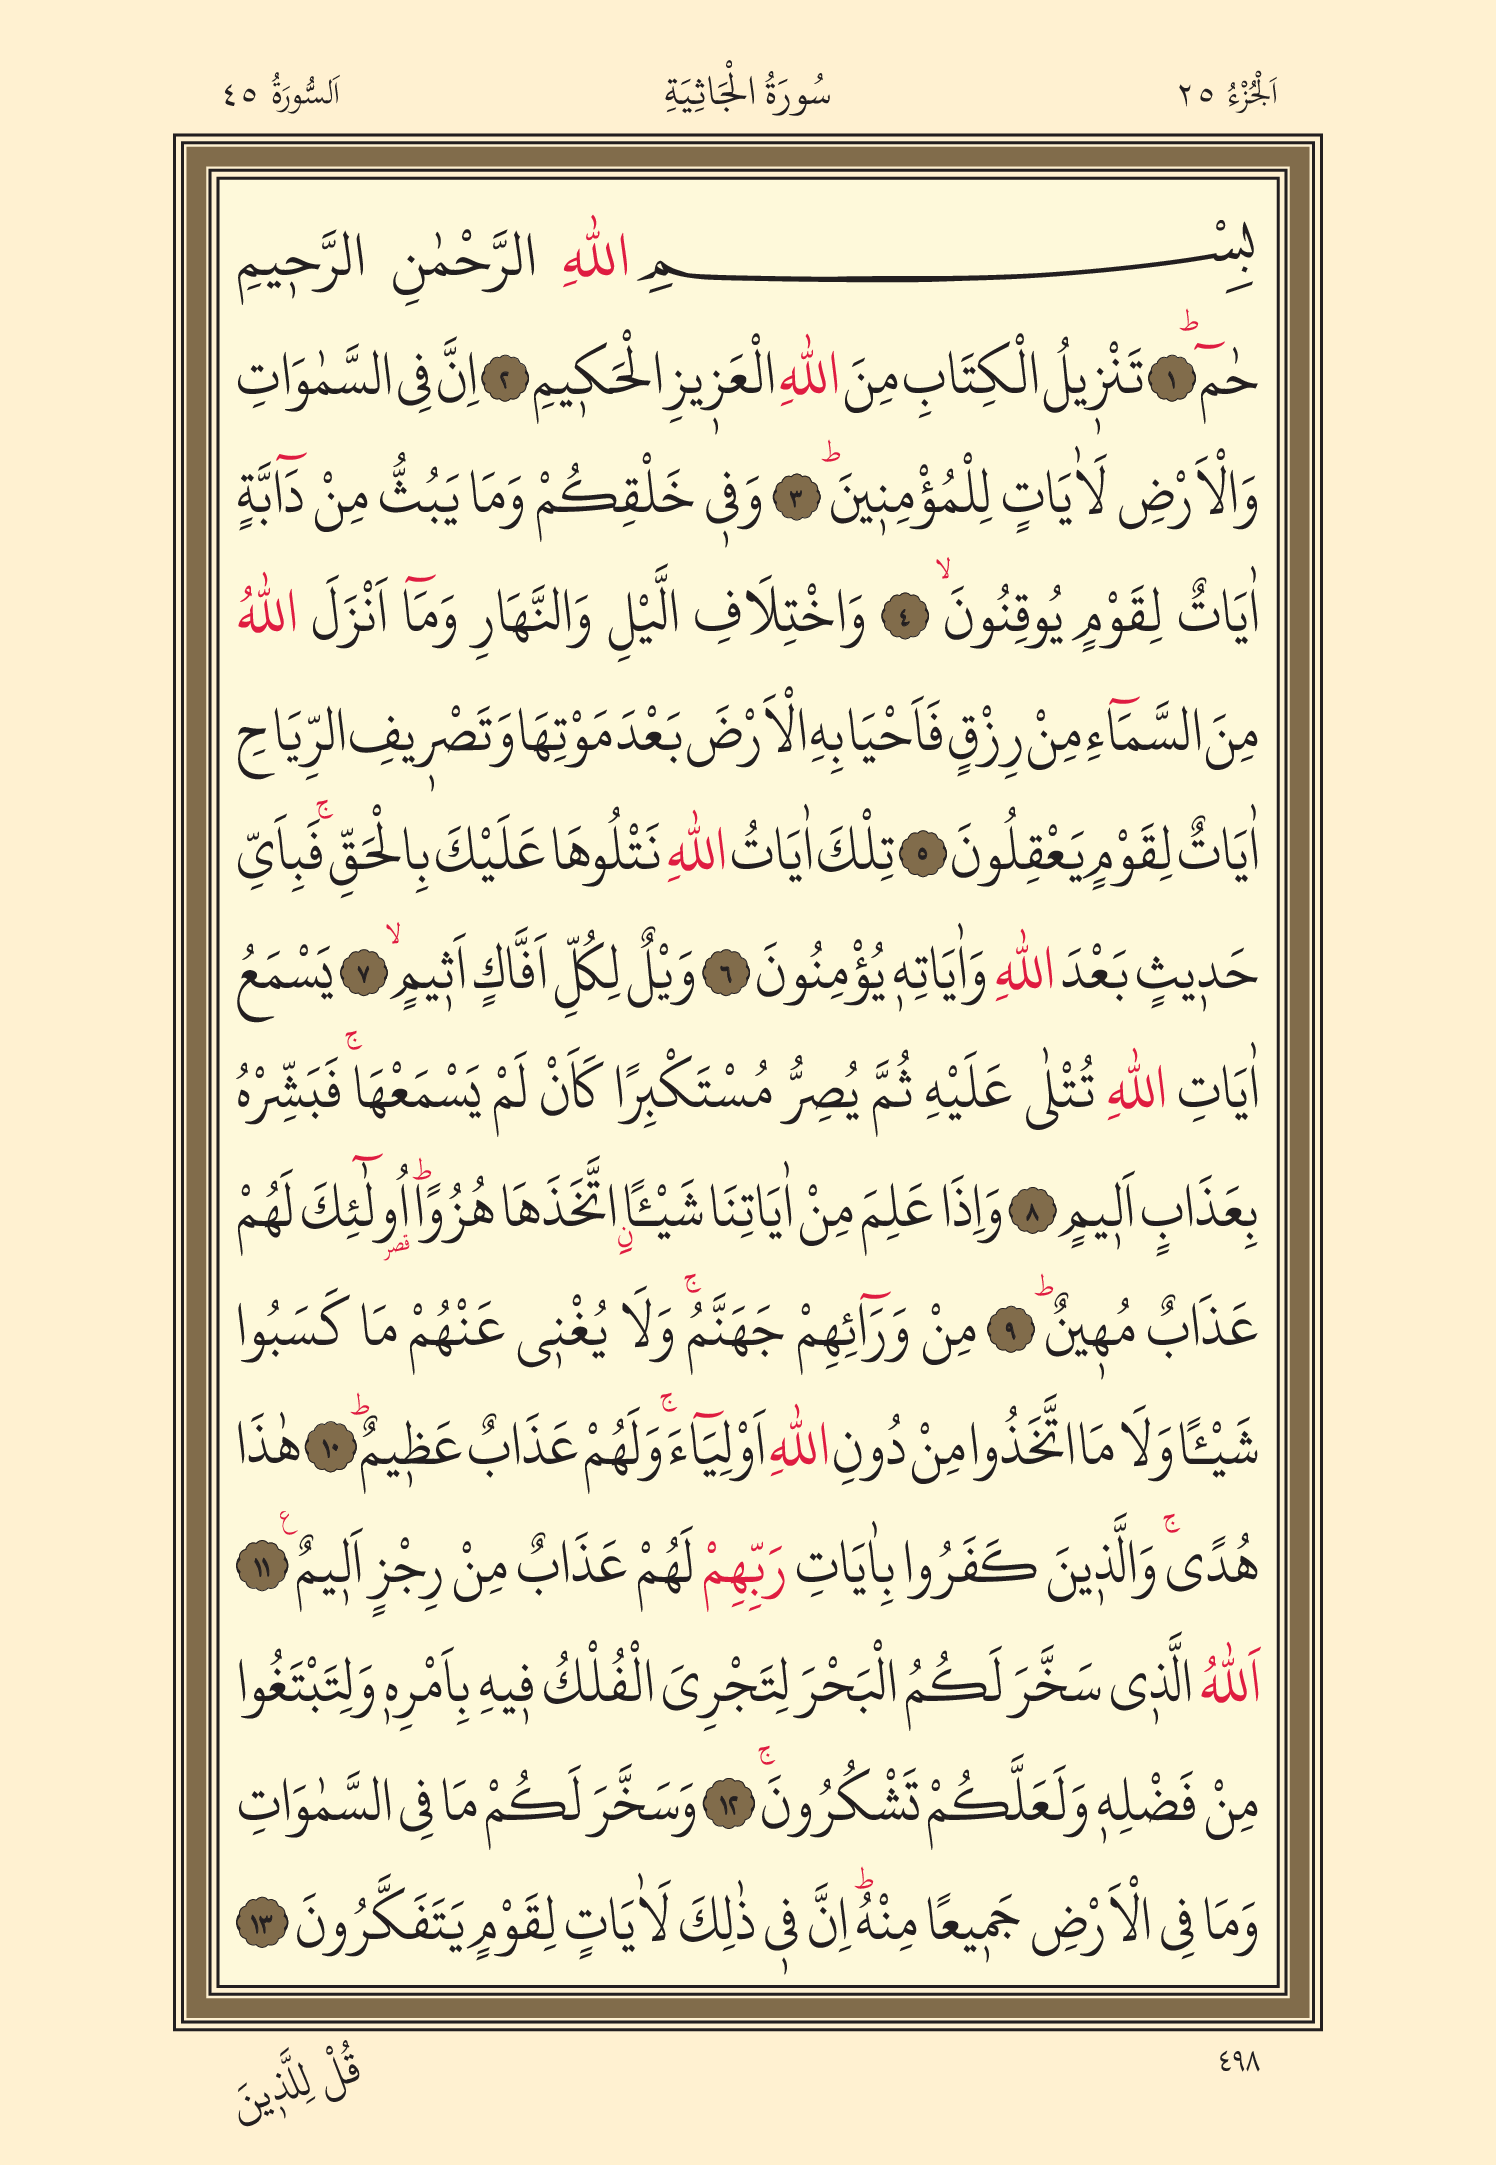 اَلْجُزْءُ ٢٥
سُورَةُ الْجَاثِيَةِ
اَلسُّورَةُ ٤٥
بِسْمِ اللّٰهِ الرَّحْمٰنِ الرَّحٖيمِ
حٰمٓ ؕ ١ تَنْزٖيلُ الْكِتَابِ مِنَ اللّٰهِ الْعَزٖيزِ الْحَكٖيمِ ٢ اِنَّ فِى السَّمٰوَاتِ
وَالْاَرْضِ لَاٰيَاتٍ لِلْمُؤْمِنٖينَ ؕ ٣ وَفٖى خَلْقِكُمْ وَمَا يَبُثُّ مِنْ دَٓابَّةٍ
اٰيَاتٌ لِقَوْمٍ يُوقِنُونَ ۙ ٤ وَاخْتِلَافِ الَّيْلِ وَالنَّهَارِ وَمَٓا اَنْزَلَ اللّٰهُ
مِنَ السَّمَٓاءِ مِنْ رِزْقٍ فَاَحْيَا بِهِ الْاَرْضَ بَعْدَ مَوْتِهَا وَتَصْرٖيفِ الرِّيَاحِ
اٰيَاتٌ لِقَوْمٍ يَعْقِلُونَ ٥ تِلْكَ اٰيَاتُ اللّٰهِ نَتْلُوهَا عَلَيْكَ بِالْحَقِّ ۚ فَبِاَىِّ
حَدٖيثٍ بَعْدَ اللّٰهِ وَاٰيَاتِهٖ يُؤْمِنُونَ ٦ وَيْلٌ لِكُلِّ اَفَّاكٍ اَثٖيمٍ ۙ ٧ يَسْمَعُ
اٰيَاتِ اللّٰهِ تُتْلٰى عَلَيْهِ ثُمَّ يُصِرُّ مُسْتَكْبِرًا كَاَنْ لَمْ يَسْمَعْهَا ۚ فَبَشِّرْهُ
بِعَذَابٍ اَلٖيمٍ ٨ وَاِذَا عَلِمَ مِنْ اٰيَاتِنَا شَيْـًٔا نِ اتَّخَذَهَا هُزُوًا ؕ اُولٰٓئِكَ قصر لَهُمْ
عَذَابٌ مُهٖينٌ ؕ ٩ مِنْ وَرَٓائِهِمْ جَهَنَّمُ ۚ وَلَا يُغْنٖى عَنْهُمْ مَا كَسَبُوا
شَيْـًٔا وَلَا مَا اتَّخَذُوا مِنْ دُونِ اللّٰهِ اَوْلِيَٓاءَ ۚ وَلَهُمْ عَذَابٌ عَظٖيمٌ ؕ ١٠ هٰذَا
هُدًى ۚ وَالَّذٖينَ كَفَرُوا بِاٰيَاتِ رَبِّهِمْ لَهُمْ عَذَابٌ مِنْ رِجْزٍ اَلٖيمٌ ع ١١
اَللّٰهُ الَّذٖى سَخَّرَ لَكُمُ الْبَحْرَ لِتَجْرِىَ الْفُلْكُ فٖيهِ بِاَمْرِهٖ وَلِتَبْتَغُوا
مِنْ فَضْلِهٖ وَلَعَلَّكُمْ تَشْكُرُونَ ۚ ١٢ وَسَخَّرَ لَكُمْ مَا فِى السَّمٰوَاتِ
وَمَا فِى الْاَرْضِ جَمٖيعًا مِنْهُ ؕ اِنَّ فٖى ذٰلِكَ لَاٰيَاتٍ لِقَوْمٍ يَتَفَكَّرُونَ ١٣
٤٩٨
قُلْ لِلَّذٖينَ